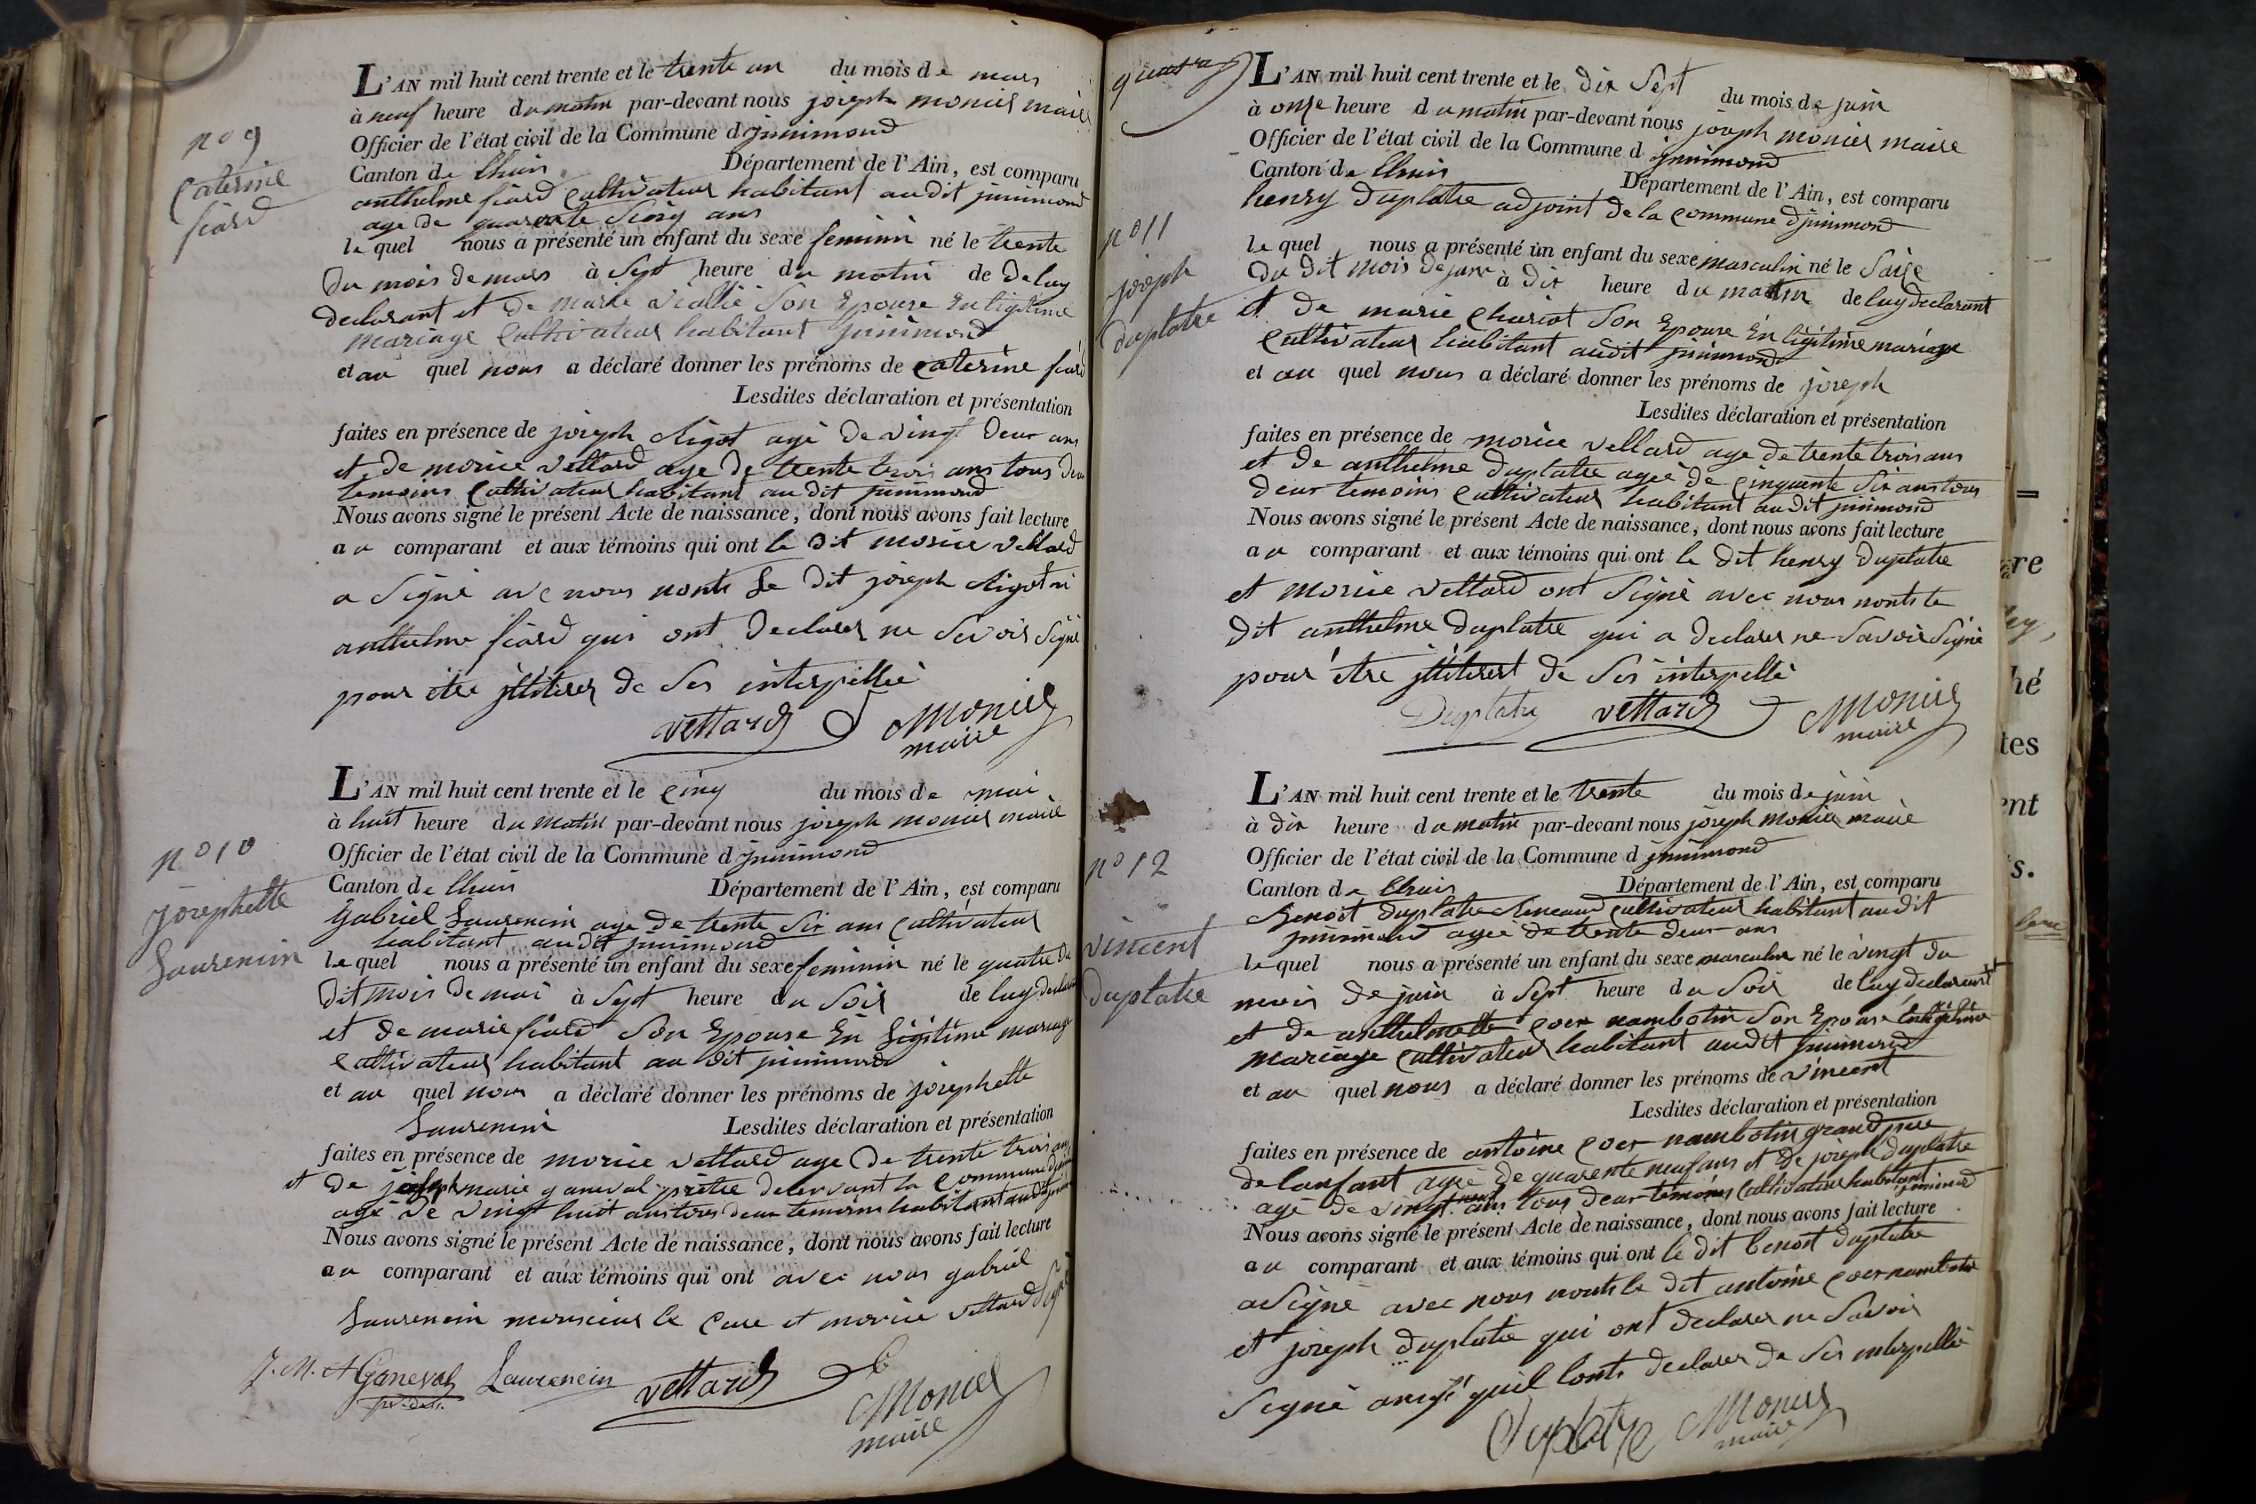 n° 9
Caterine
fiard
L'AN mil huit cent trente et le trente un du mois de mars
à neuf heure du matin par-devant nous joseph monier maire
Officier de l'état civil de la Commune d jnnimond
Canton de lhuis Département de l'Ain, est comparu
anthelme fiard Cultivateur habitant audit jnnimond
age de quarente Sinq ans
le quel nous a présenté un enfant du sexe feminin né le trente
du mois de mars à Sept heure du matin de de luy
declarant et de marie Son Epouse En ligitime
mariage Cultivateur habitant jnnimond
et au quel nous a déclaré donner les prénoms de Caterine fiard
Lesdites déclaration et présentation
faites en présence de joseph Rigot agé de vingt deux ans
et de morice vettard age de trente trois ans tous deux
temoins Cultivateur habitant au dit jnnimond
Nous avons signé le présent Acte de naissance, dont nous avons fait lecture
au comparant et aux témoins qui ont le dit morice vettard
a Signé avec nous nonts Le dit joseph Rigot ni
anthelme fiard qui ont declarer ne Savoir Signé
pour être jlliterer de Ses interpellié
vettard Monier
maire
n° 10
josephette
Laurencin
L'AN mil huit cent trente et le Cinq du mois de mai
à huit heure du matin par-devant nous joseph monier maire
Officier de l'état civil de la Commune d jnnimond
Canton de lhuis Département de l'Ain, est comparu
Gabriel Laurencin age de trente Six ans Cultivateur
habitant audit jnnimond
le quel nous a présenté un enfant du sexe feminin né le quatre du
dit mois de mai à Sept heure du Soir de luy declarant
et de marie fiard Son Epouse En Ligitime mariage
Cultivateur habitant au dit jnnimond
et au quel nous a déclaré donner les prénoms de josephette
Laurencin Lesdites déclaration et présentation
faites en présence de morice vettard age de trente trois ans
et de joseph marie ganeval prêtre deservant la Commune
agé de vingt huit ans tous deux temoins habitant audit
Nous avons signé le présent Acte de naissance, dont nous avons fait lecture
au comparant et aux témoins qui ont avec nous gabriel
Laurencin monsieur le Cure et morice vettard Signé
J. M. A Ganeval Laurencin vettard Monier
maire
quatre
L'AN mil huit cent trente et le dix Sept du mois de juin
à onze heure du matin par-devant nous joseph monier maire
Officier de l'état civil de la Commune d jnnimond
Canton de lhuis Département de l'Ain, est comparu
henry Duplatre adjoint de la Commune djnnimond
n° 11
joseph
duplatre
le quel nous a présenté un enfant du sexe masculin né le Saize
du dit mois de juin à dix heure du matin de luy declarant
et de marie Chariot Son Epouse En ligitime mariage
Cultivateur habitant audit jnnimond
et au quel nous a déclaré donner les prénoms de joseph
Lesdites déclaration et présentation
faites en présence de morice vettard age de trente trois ans
et de anthelme duplatre ageé de Cinquante Six ans tous
deux temoins Cultivateur habitant audit jnnimond
Nous avons signé le présent Acte de naissance, dont nous avons fait lecture
au comparant et aux témoins qui ont le dit henry duplatre
et morice vettard ont Signé avec nous nonts le
dit anthelme duplatre qui a declarer ne Savoir Signé
pour être jlliterert de Ses interpellé
Duplatre vettard Monier
maire
n° 12
vincent
duplatre
L'AN mil huit cent trente et le trente du mois de juin
à dix heure du matin par-devant nous joseph monier maire
Officier de l'état civil de la Commune d jnnimond
Canton de lhuis Département de l'Ain, est comparu
Benoit duplatre Cultivateur habitant audit
jnnimond ageé de trente deux ans
le quel nous a présenté un enfant du sexe masculin né le vingt du
mois de juin à Sept heure du Soir de luy declarant
et de anthelmette Coer nambotin Son Epouse
mariage Cultivateur habitant audit jnnimond
et au quel nous a déclaré donner les prénoms de vincent
Lesdites déclaration et présentation
faites en présence de antoine Coer nambotin grand pere
de lanfant agé de quarente neuf ans et de joseph duplatre
agé de vingt neuf ans tous deux temoins Cultivateur habitant jnnimond
Nous avons signé le présent Acte de naissance, dont nous avons fait lecture
au comparant et aux témoins qui ont le dit benoit duplatre
a Signé avec nous nonts le dit antoine Coer nambotin
et joseph duplatre qui ont declarer ne Savoir
Signé quil lonts declarer de Ses interpellé
Duplatre Monier
maire